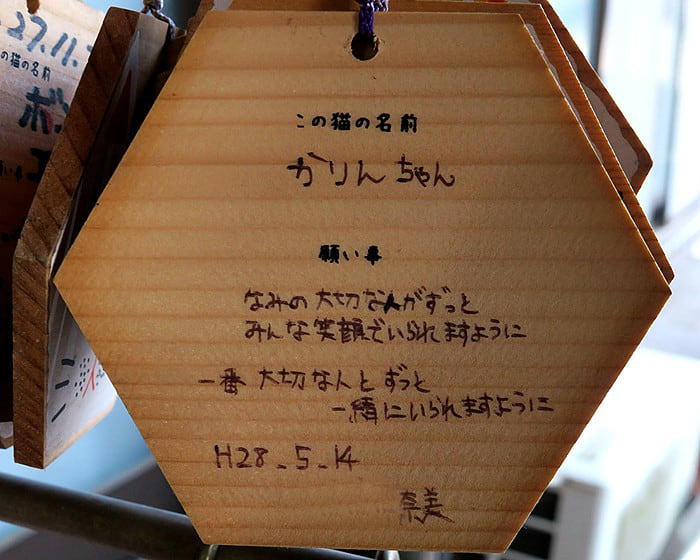 27.11.
の猫の名前
この猫の名前
かりんちゃん
願い事
なみの大切な人がずっと
みんな笑顔でいられますように
一番大切な人とずっと
一緒にいられますように
H28.5.14
奈美